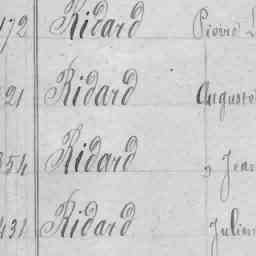 172 Ridard Pierre
21 Ridard Auguste
354 Ridard " Jean
431 Ridard Julien